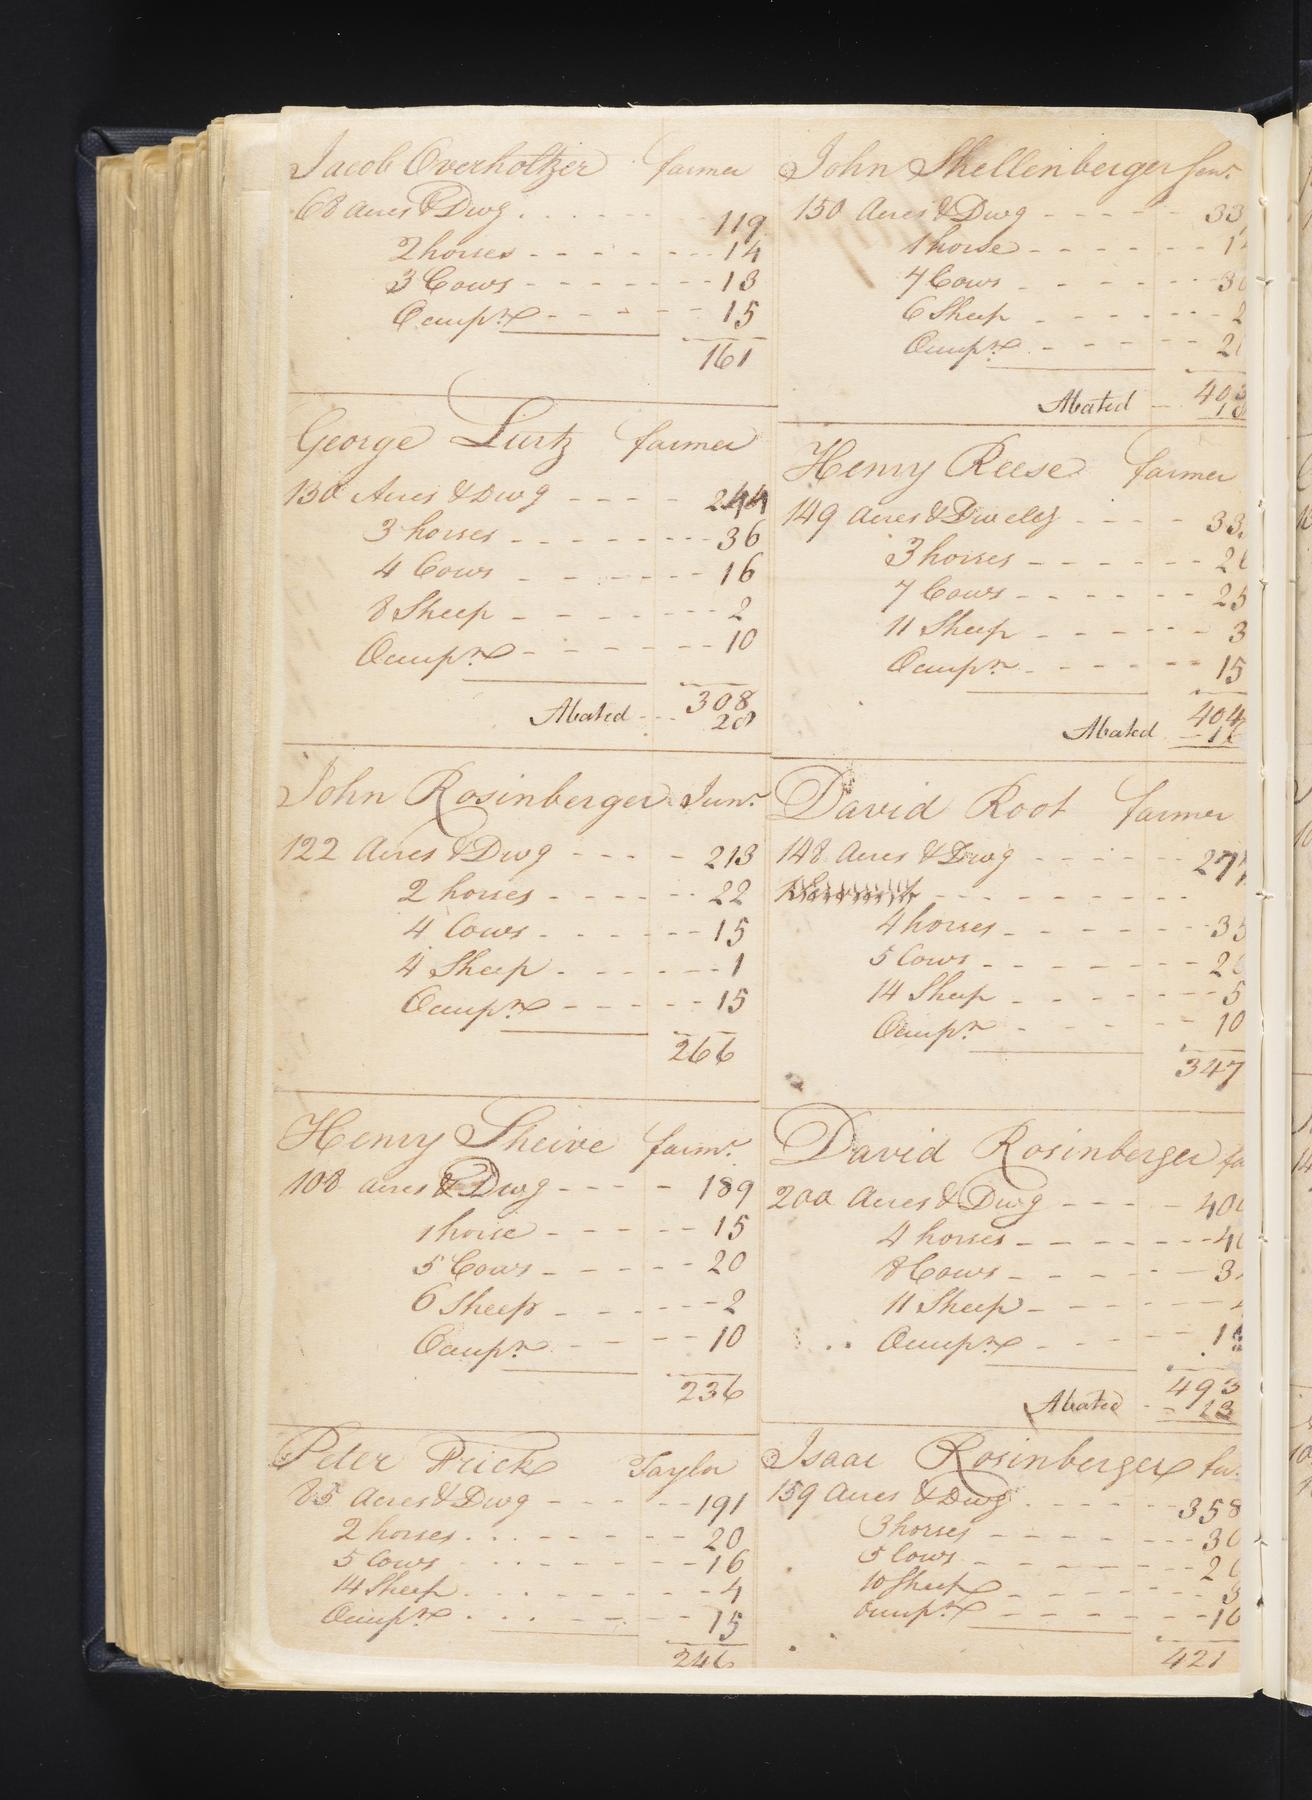 Jacob Overholtzer farmer
68 acres & Dwg 119
2 horses 14
3 Cows 13
Occup.n 15
161
George Lurtz farmer
130 Acres & Dwg 244
3 horses 36
4 Cows 16
8 Sheep 2
Occup.n 10
308
Abated 20
John Rosinberger Jun.r
122 Acres & Dwg 213
2 horses 22
4 Cows 15
4 Sheep 1
Occup.n 15
266
Henry Sheive farm.r
108 acres & Dwg 189
1 horse 15
5 Cows 20
6 Sheep 2
Occup.n 10
236
Peter Frick Taylor
85 Acres & Dwg 191
2 horses 20
5 Cows 16
14 Sheep 4
Occup.n 15
246
John Shellenberger
150 Acres & Dwg 33
1 horse 1
7 Cows 30
6 Sheep 2
Occup.n 2
403
Abated
Henry Reese farmer
149 acres & 33
3 horses 2
7 Cows 25
11 Sheep 3
Occup.n 15
404
Abated
David Root farmer
148 Acres & Dwg 277
4 horses 35
5 Cows 20
14 Sheep 5
Occup.n 10
347
David Rosinberger fa
200 Acres & Dwg 400
4 horses 40
8 Cows 3
11 Sheep
Occup.n 15
493
Abated 23
Isaac Rosinberger
159 Acres & Dwg 358
3 horses 30
5 Cows 20
10 Sheep 3
Occup.n 10
421